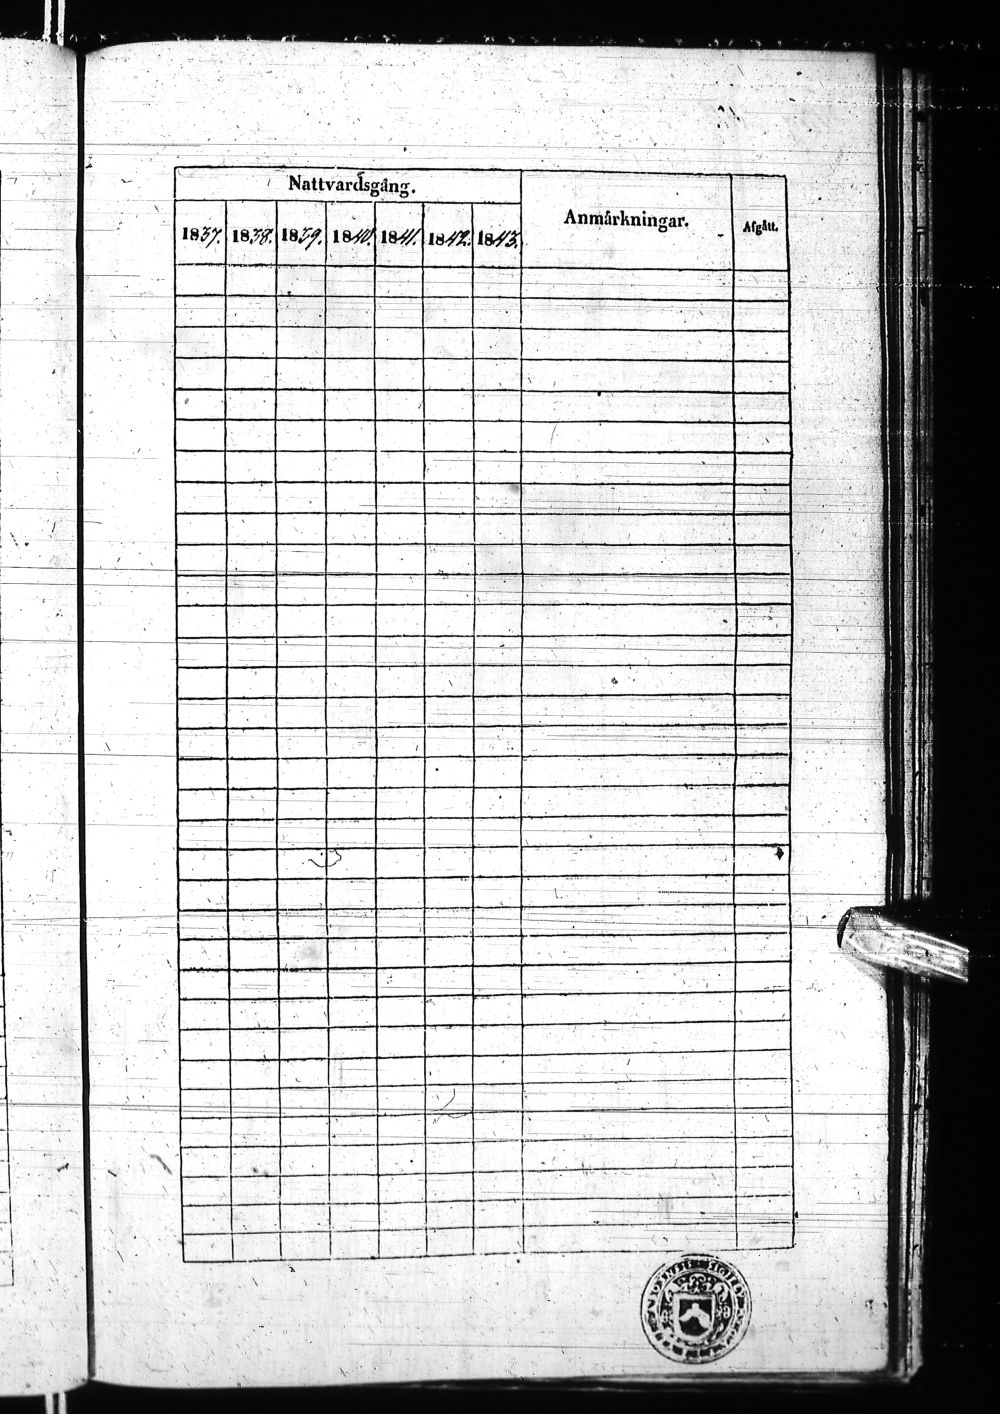 Nattvardsgång.
Anmärkningar.
Afgått.
1837. 1838. 1839. 1840. 1841. 1842. 1843.